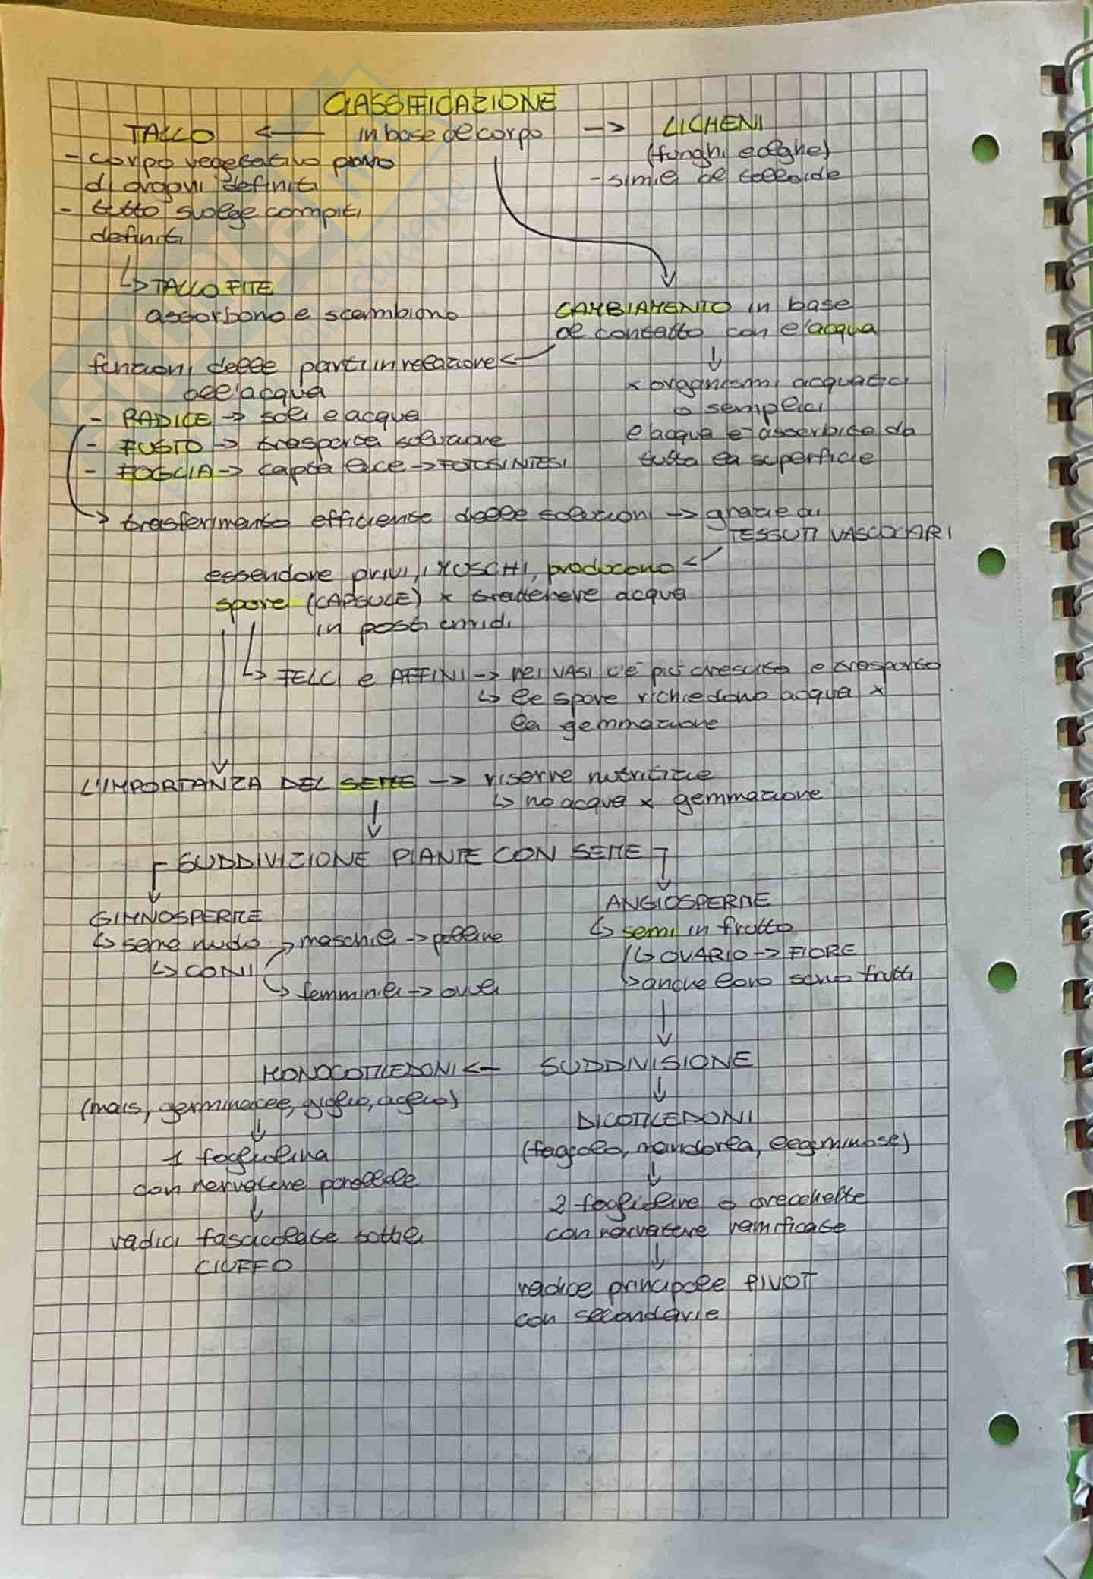 CLASSIFICAZIONE
TALLO ← in base al corpo → LICHENI
(funghi e alghe)
- corpo vegetativo privo
di organi definiti
- simile al colloide
- tutto svolge compiti
definiti
↳ TALLOFITE
assorbono e scambiano
CAMBIAMENTO in base
al contatto con l'acqua
funzioni delle parti in relazione
all'acqua
x organismi acquatici
o semplici
l'acqua è assorbita da
tutta la superficie
- RADICE → sali e acqua
- FUSTO → trasporta soluzione
- FOGLIA → capta luce → FOTOSINTESI
→ trasferimento efficiente delle soluzioni → grazie ai
TESSUTI VASCOLARI
essendone privi, i MUSCHI, producono
spore (CAPSULE) x trattenere acqua
in posti umidi
↳ FELCI e AFFINI → nei VASI c'è più crescita e trasporto
↳ le spore richiedono acqua x
la gemmazione
L'IMPORTANZA DEL SEME → riserve nutritive
↳ no acqua x gemmazione
SUDDIVIZIONE PIANTE CON SEME
GIMNOSPERME
↳ seme nudo
↳ CONI
→ maschili → polline
→ femminili → ovuli
ANGIOSPERME
↳ semi in frutto
↳ OVARIO → FIORE
↳ anche loro sono frutti
MONOCOTILEDONI ← SUDDIVISIONE
(mais, germinacee, giglio, aglio)
↓
1 fogliolina
con nervature parallele
↓
radici fascicolate sottili
CIUFFO
DICOTILEDONI
(fagiolo, mandorla, legiminose)
↓
2 foglioline o orecchiette
con nervature ramificate
↓
radice principale PIVOT
con secondarie